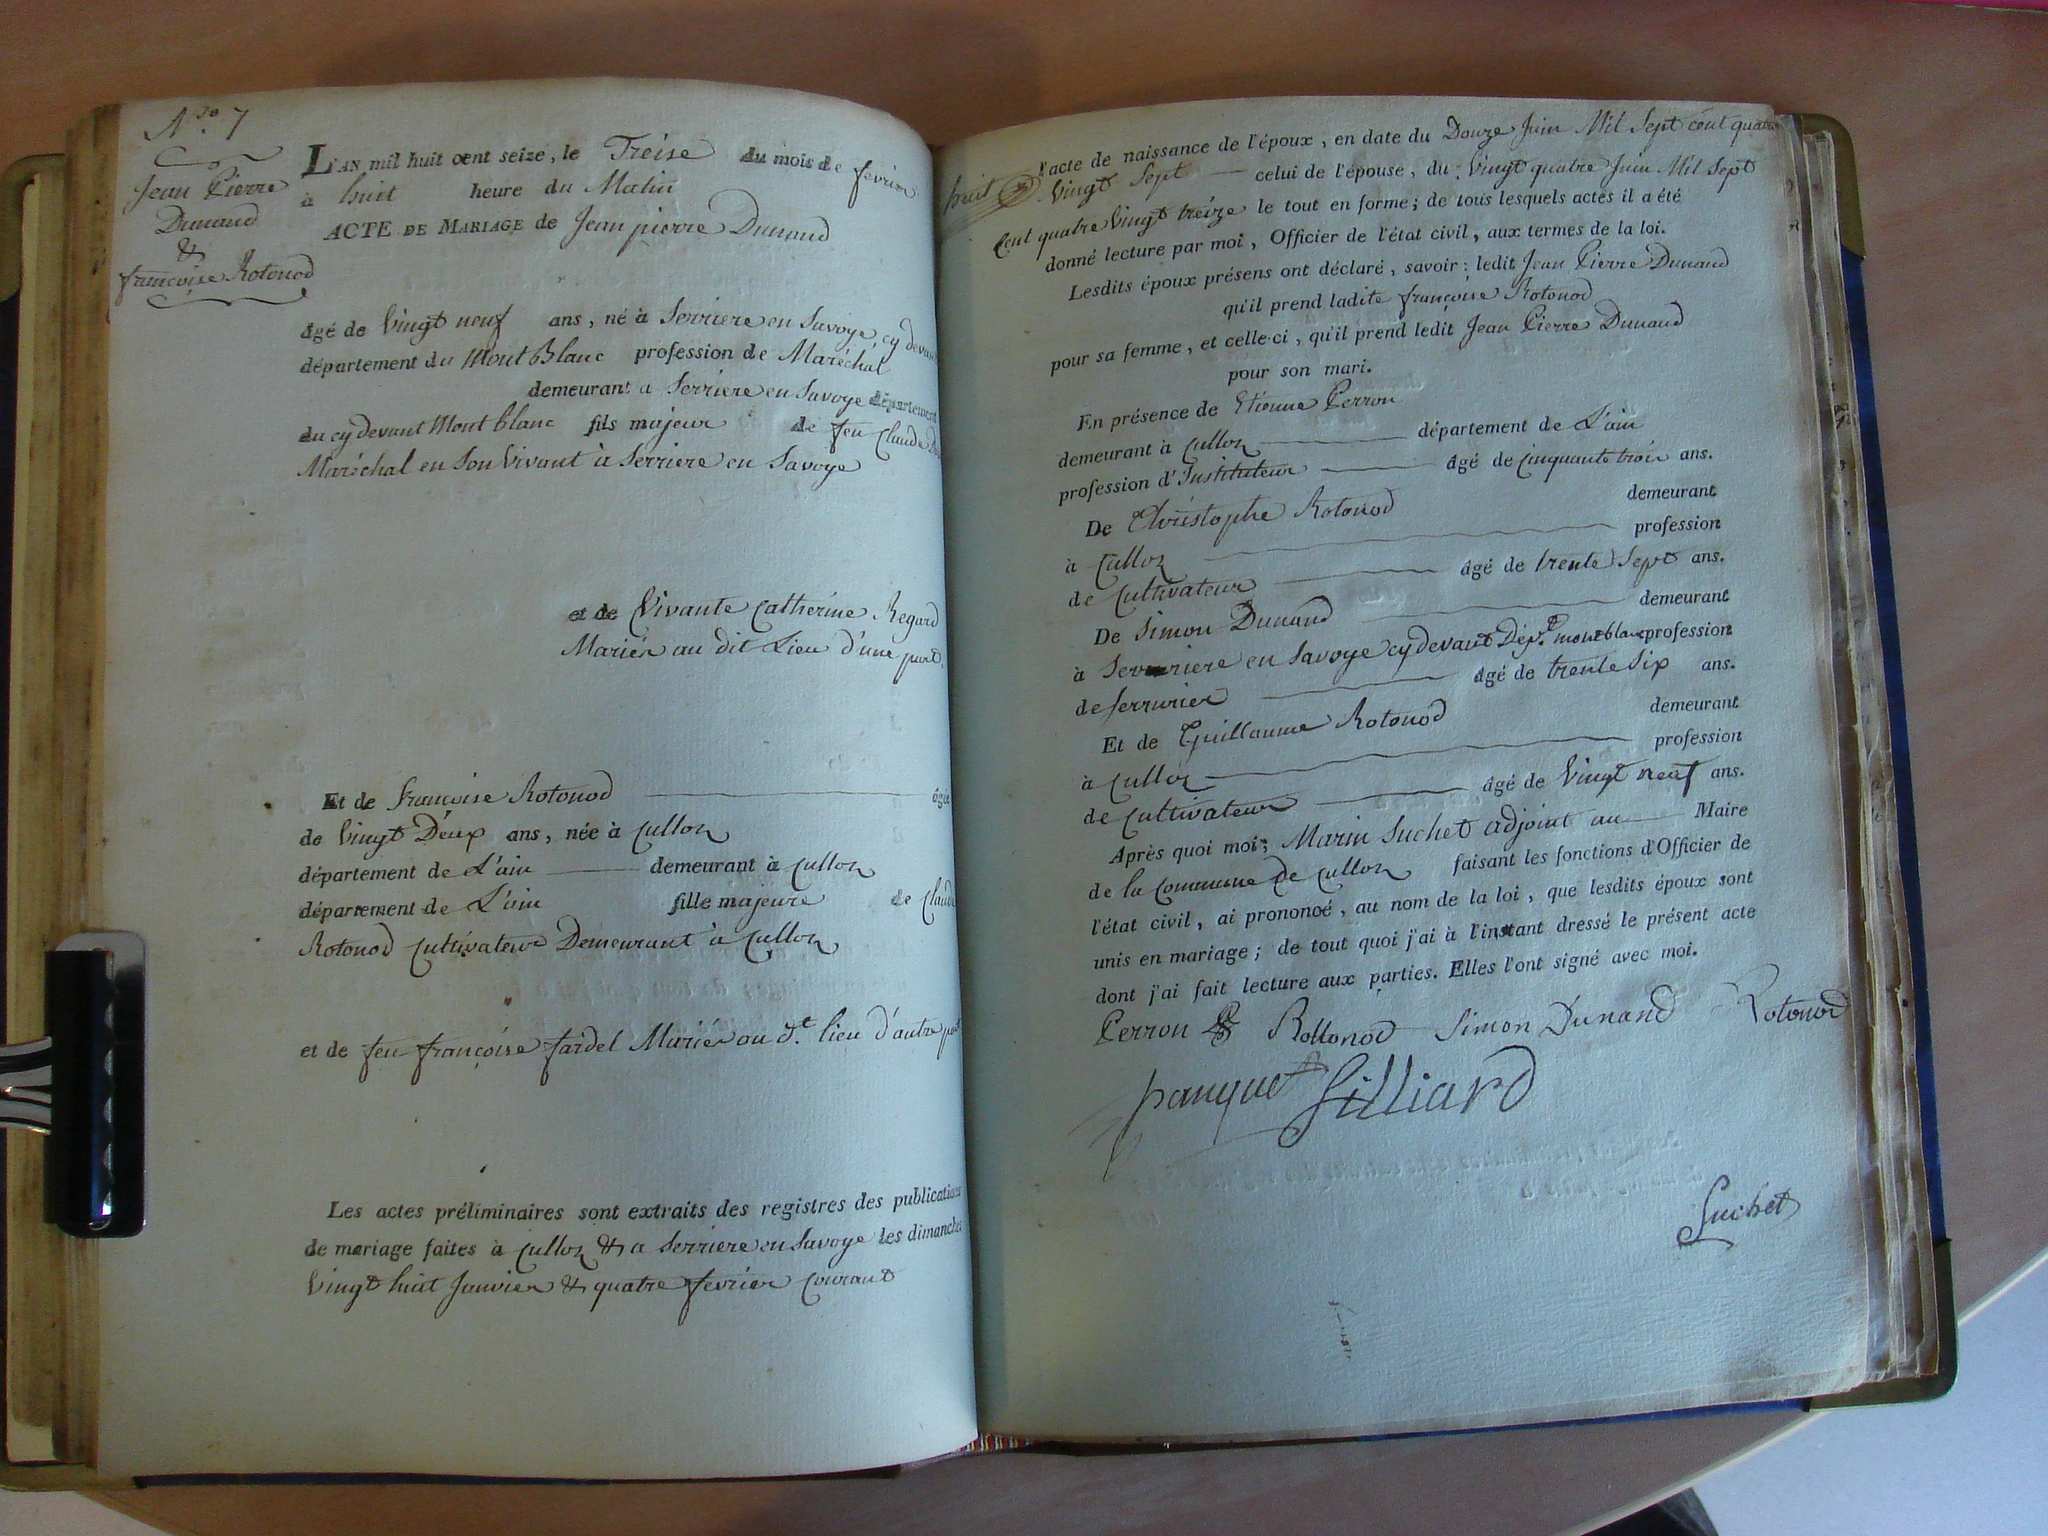 N.o 7
Jean Pierre
Dunand
&
françoise Rotonod
L'AN mil huit cent seize, le Treise du mois de fevrier
à huit heure du Matin
ACTE DE MARIAGE de Jean pierre Dunand
âgé de Vingt neuf ans, né à Serriere en Savoye, cy devant
département du Mont Blanc profession de Maréchal
demeurant a Serriere en Savoye département
du cy devant Mont blanc fils majeur de feu Claude
Maréchal en Son Vivant à Serriere en Savoye
et de Vivante Catherine Regard
Mariés au dit Lieu d'une part.
Et de francoise Rotonod âgée
de Vingt Deux ans, née à Culloz
département de L'ain demeurant à Culloz
département de L'ain fille majeure de Claude
Rotonod Cultivateur Demeurant à Culloz
et de feu françoise fardel Mariés au d.t lieu d'autre part
Les actes préliminaires sont extraits des registres des publications
de mariage faites à Culloz & a Serriere en Savoye les dimanches
Vingt huit Janvier & quatre fevrier Courant
l'acte de naissance de l'époux, en date du Douze Juin Mil Sept cent quatre
huit Vingt Sept celui de l'épouse, du Vingt quatre Juin Mil Sept
Cent quatre Vingt treize le tout en forme; de tous lesquels actes il a été
donné lecture par moi, Officier de l'état civil, aux termes de la loi.
Lesdits époux présens ont déclaré, savoir: ledit Jean Pierre Dunand
qu'il prend ladite françoise Rotonod
pour sa femme, et celle-ci, qu'il prend ledit Jean Pierre Dunand
pour son mari.
En présence de Etienne Perron
demeurant à Culloz département de L'ain
profession d'Instituteur âgé de Cinquante trois ans.
De Christophe Rotonod demeurant
à Culloz profession
de Cultivateur âgé de trente Sept ans.
De Simon Dunand demeurant
à Serriere en Savoye cy devant Dép.t mont blanc profession
de Serrurier âgé de trente Six ans.
Et de Guillaume Rotonod demeurant
à Culloz profession
de Cultivateur âgé de Vingt neuf ans.
Après quoi moi, Marin Suchet adjoint au Maire
de la Commune de Culloz faisant les fonctions d'Officier de
l'état civil, ai prononcé, au nom de la loi, que lesdits époux sont
unis en mariage; de tout quoi j'ai à l'instant dressé le présent acte
dont j'ai fait lecture aux parties. Elles l'ont signé avec moi.
Perron Rottonod Simon Dunand Rotonod
panquet Silliard
Suchet